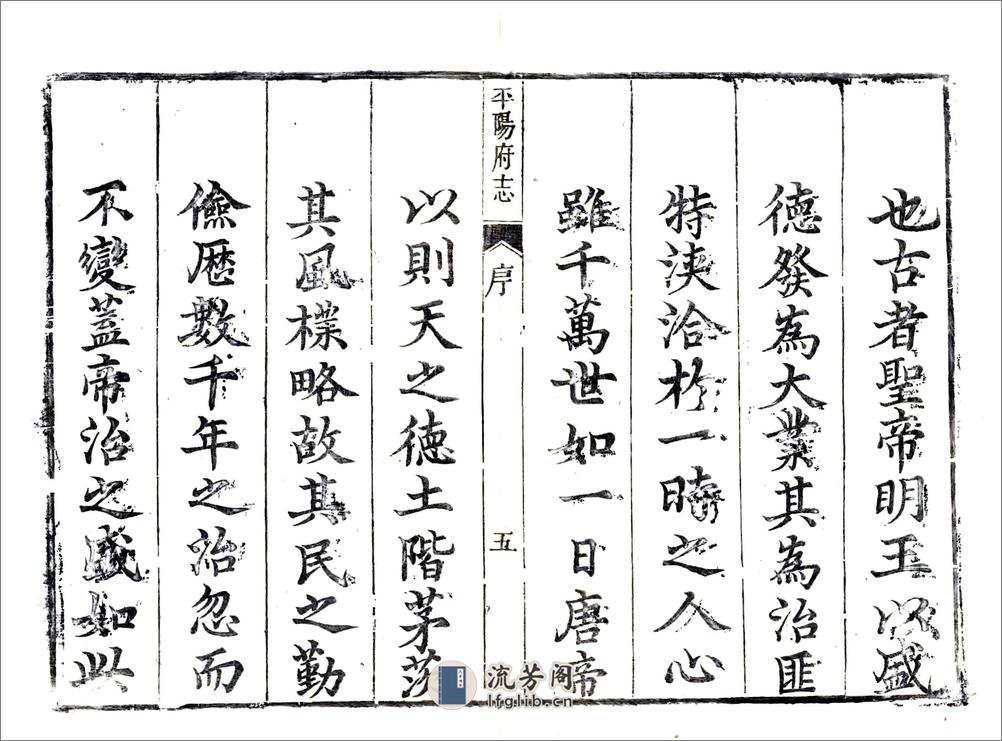 也古者聖帝明王以盛
德發為大業其為治匪
特浹洽於一時之人心
雖千萬世如一日唐帝
平陽府志
序
五
以則天之德土階茅茨
其風樸略故其民之勤
儉歷數千年之治忽而
不變蓋帝治之盛如此
流芳阁
lfglib.cn